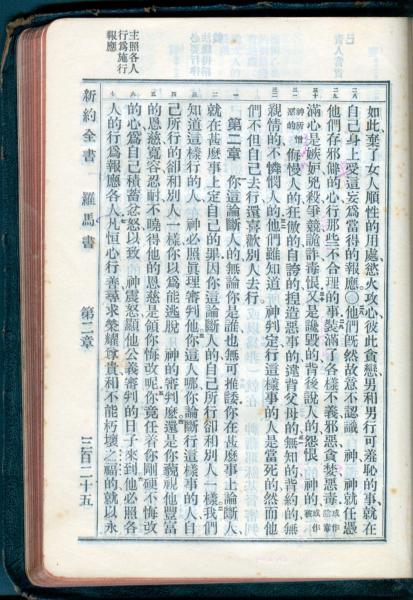 如此棄了女人順性的用處慾火攻心彼此貪戀男和男行可羞恥的事就在
自己身上受這妄爲當得的報應○他們旣然故意不認識 神、神就任憑
他們存邪僻的心行那些不合理的事裝滿了各樣不義邪惡貪婪惡毒
滿心是嫉妒兇殺爭競詭詐毒恨又是讒毀的背後說人的怨恨 神的
侮慢人的狂傲的自誇的捏造惡事的違背父母的無知的背約的無
親情的不憐憫人的他們雖知道 神判定行這樣事的人是當死的然而他
們不但自己去行還喜歡別人去行
第二章 你這論斷人的無論你是誰也無可推諉你在甚麼事上論斷人、
就在甚麼事上定自己的罪因你這論斷人的自己所行卻和別人一樣我們
知道這樣行的人、神必照眞理審判他你這人哪你論斷行這樣事的人自
己所行的卻和別人一樣你以爲能逃脫 神的審判麼還是你藐視他豐富
的恩慈寬容忍耐不曉得他的恩慈是領你悔改呢你竟任着你剛硬不悔改
的心爲自己積蓄忿怒以致 神震怒顯他公義審判的日子來到他必照各
人的行爲報應各人凡恒心行善尋求榮耀尊貴和不能朽壞之福的就以永
主照各人
行爲施行
報應
新約全書 羅馬書 第二章 三百二十五